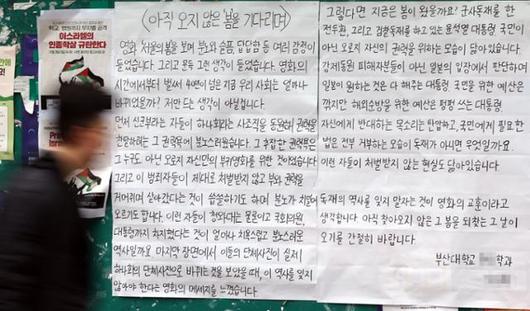 학교, 팬스타즈 부지별 공격
이스라엘의
인종학살 규탄한다
<아직 오지 않은 봄을 기다리며>
영화 서울의봄을 보며 분노와 슬픔, 답답함 등 여러 감정이
들었습니다. 그리고 문득 그런 생각이 들었습니다. 영화의
시간에서부터 벌써 40년이 넘은 지금 우리 사회는 얼마나
바뀌었을까? 저만 드는 생각이 아닐겁니다.
먼저 신군부라는 자들이 하나회라는 사조직을 동원해 권력을
찬탈하려는 그 권력욕에 분노스러웠습니다. 그 추잡한 권력욕은
그 누구도 아닌 오로지 자신만의 부귀영화를 위한 것이었습니다.
그리고 이 범죄자들이 제대로 처벌받지 않고 부와 권력을
거머쥐며 살아갔다는 것이 씁쓸하기도 하며 분노가 치밀어
오르기도 합니다. 이런 자들이 청와대는 물론이고 국회의원,
대통령까지 차지했다는 것이 얼마나 치욕스럽고 분노스러운
역사일까요. 마지막 장면에서 이들의 단체사진이 실제
하나회의 단체사진으로 바뀌는 것을 보았을 때, 이 역사를 잊지
않아야 한다는 영화의 메세지를 느꼈습니다.
그렇다면 지금은 봄이 왔을까요? 군사독재를 한
전두환, 그리고 검찰독재를 하고 있는 윤석열 대통령. 국민이
아닌 오로지 자신의 권력을 위하는 모습이 닮아있습니다.
강제동원 피해자분들이 아닌 일본의 입장에서 판단하며
일본이 원하는 것은 다 해주는 대통령. 국민을 위한 예산은
깎지만 해외순방을 위한 예산은 펑펑 쓰는 대통령.
자신에게 반대하는 목소리는 탄압하고, 국민에게 필요한
법은 전부 거부하는 모습이 독재가 아니면 무엇일까요.
이런 자들이 처벌받지 않는 현실도 닮아있습니다.
독재의 역사를 잊지 말자는 것이 영화의 교훈이라고
생각합니다. 아직 찾아오지 않은 그 봄을 되찾는 그 날이
오기를 간절히 바랍니다.
부산대학교 학과